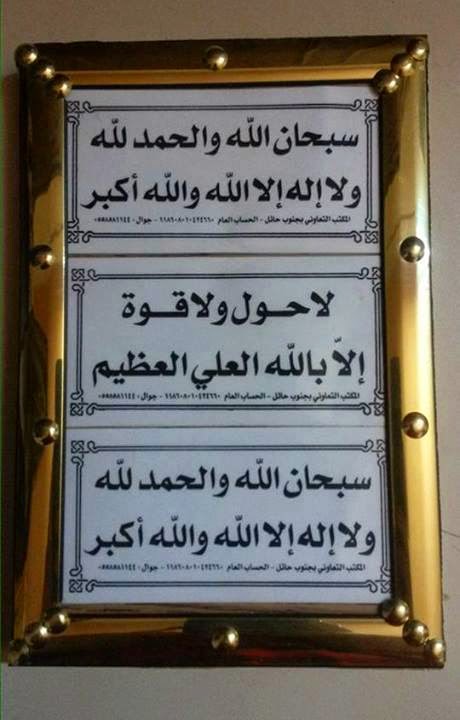 سبحان الله والحمد لله
ولا إله إلا الله والله أكبر
المكتب التعاوني بجنوب حائل - الحساب العام ١١٨٦٠٨٠١٠٤٢٤٦٦٠ - جوال:
لا حول ولا قوة
إلا بالله العلي العظيم
المكتب التعاوني بجنوب حائل - الحساب العام ١١٨٦٠٨٠١٠٤٢٤٦٦٠ - جوال:
سبحان الله والحمد لله
ولا إله إلا الله والله أكبر
المكتب التعاوني بجنوب حائل - الحساب العام ١١٨٦٠٨٠١٠٤٢٤٦٦٠ - جوال: